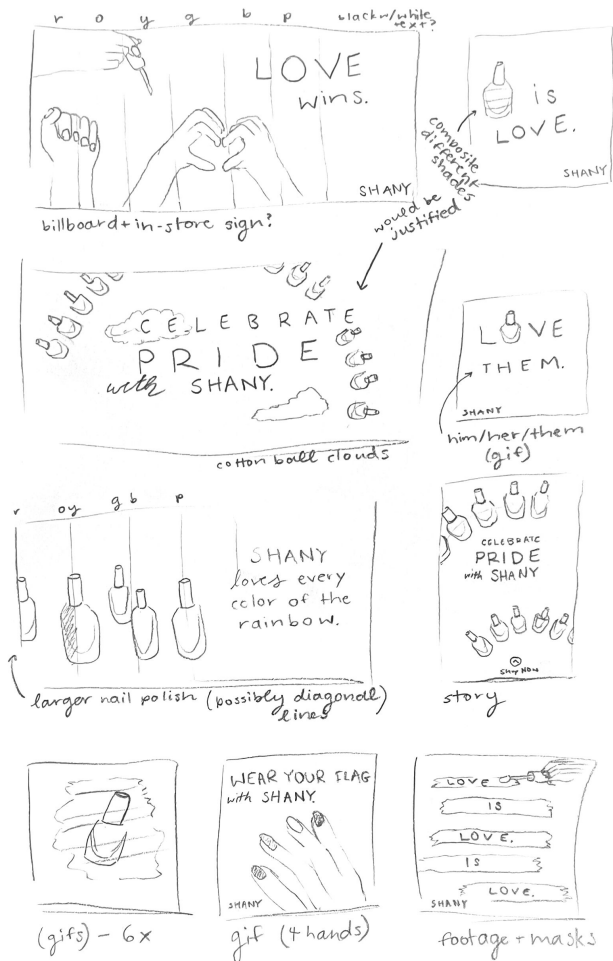 r o y g b p black w/ white text?
LOVE
wins.
SHANY
billboard + in-store sign?
is
LOVE.
SHANY
composite
different
shades
would be
justified
CELEBRATE
PRIDE
with SHANY.
cotton ball clouds
LOVE
THEM.
SHANY
him/her/them
(gif)
r oy g b p
SHANY
loves every
color of the
rainbow.
larger nail polish (possibly diagonal)
lines
CELEBRATE
PRIDE
with SHANY
Shop Now
story
(gifs) - 6x
WEAR YOUR FLAG
with SHANY.
SHANY
gif (4 hands)
LOVE
IS
LOVE.
IS
LOVE.
SHANY
footage + masks